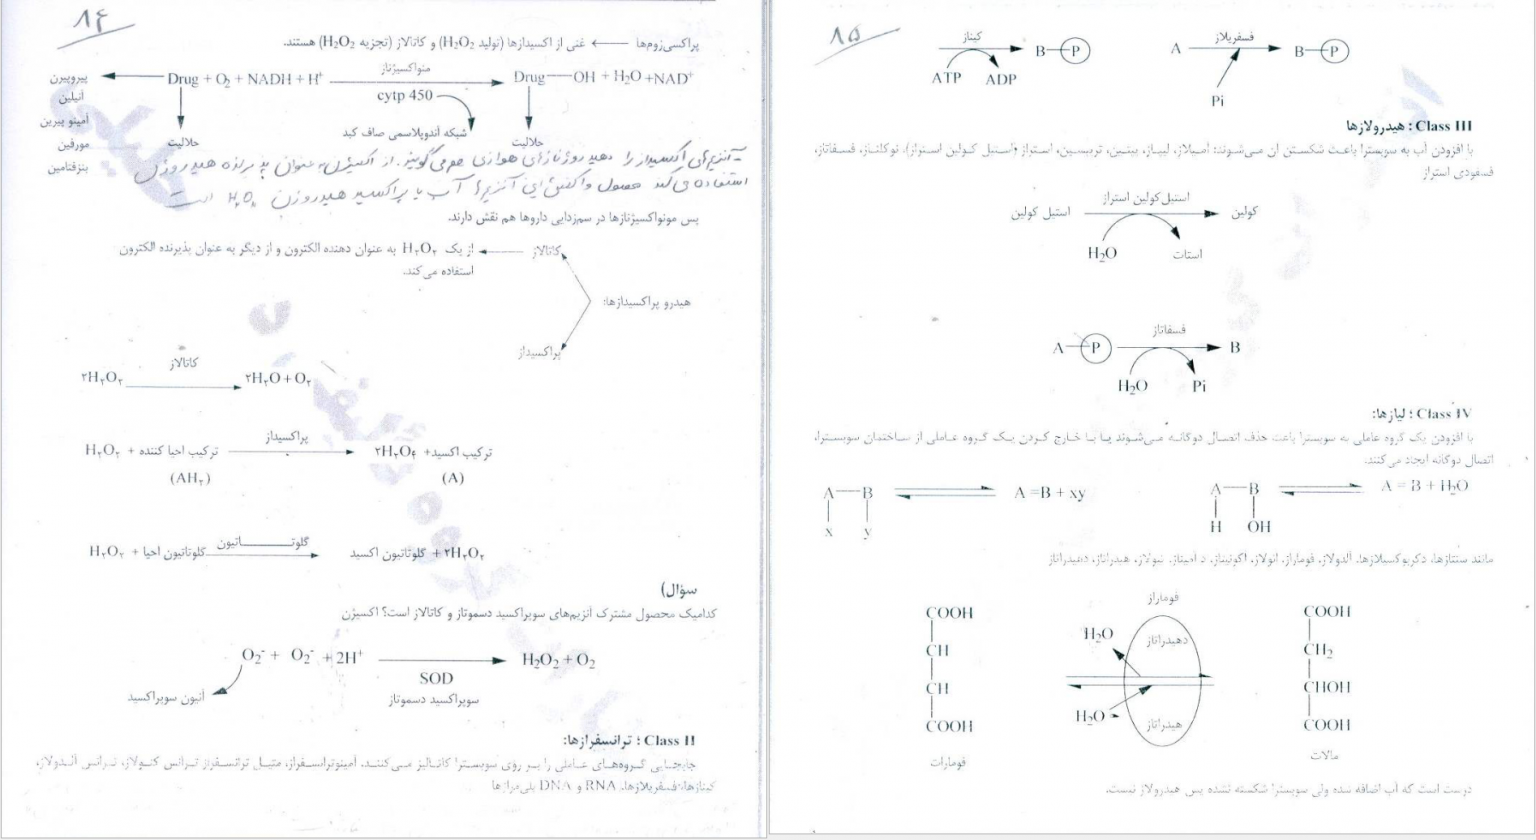 ۸۴
پراکسی‌زوم‌ها ← غنی از اکسیدازها (تولید H2O2) و کاتالاز (تجزیه H2O2) هستند.
Drug + O2 + NADH + H+ منواکسیژناز cytp 450 Drug—OH + H2O +NAD+
پیروپیرن
آنیلین
آمینو پیرین
مورفین
بنزفتامین
حلالیت
شبکه آندوپلاسمی صاف کبد
حلالیت
- آنزیم‌های اکسیداز را دهیدروژنازهای هوازی هم می‌گویند. از اکسیژن به عنوان پذیرنده هیدروژن
استفاده می‌کند محصول واکنش این آنزیم‌ها آب یا پراکسید هیدروژن H2O2 است
پس مونواکسیژنازها در سم‌زدایی داروها هم نقش دارند.
کاتالاز ← از یک H۲O۲ به عنوان دهنده الکترون و از دیگر به عنوان پذیرنده الکترون
استفاده می‌کند.
هیدرو پراکسیدازها:
پراکسیداز
کاتالاز
۲H۲O۲ ۲H۲O+O۲
پراکسیداز
H۲O۲ + ترکیب احیا کننده ۲H۲O۴ +ترکیب اکسید
(AH۲) (A)
H۲O۲ + گلوتاتیون احیا گلوتـــاتیون گلوتاتیون اکسید +۲H۲O۲
سؤال)
کدامیک محصول مشترک آنزیم‌های سوپراکسید دسموتاز و کاتالاز است؟ اکسیژن
O2- + O2- + 2H+ H2O2 + O2
SOD
سوپراکسید دسموتاز
آنیون سوپراکسید
Class II : ترانسفرازها:
جابجایی گروه‌های عاملی را بر روی سوبسترا کاتالیز می‌کنند، آمینوترانسفراز، متیل ترانسفراز ترانس کتولاز، ترانس آلدولاز،
کینازها، فسفریلازها، RNA و DNA پلی‌مرازها
۸۵
کیناز B—P
ATP ADP
A فسفریلاز B—P
Pi
Class III : هیدرولازها
با افزودن آب به سوبسترا باعث شکستن آن می‌شوند؛ آمیلاز، لیپاز، پپسین، تریپسین، استراز (استیل کولین استراز)، نوکلئاز، فسفاتاز،
فسفودی استراز
استیل کولین استیل کولین استراز کولین
H2O استات
A—P فسفاتاز B
H2O Pi
Class IV : لیازها:
با افزودن یک گروه عاملی به سوبسترا باعث حذف اتصال دوگانه می‌شوند یا با خارج کردن یک گروه عاملی از ساختمان سوبسترا،
اتصال دوگانه ایجاد می‌کنند.
A—B A =B + xy
x y
A—B A = B + H2O
H OH
مانند سنتازها، دکربوکسیلازها، آلدولاز، فوماراز، انولاز، آکونیتاز، د آمیناز، نیولاز، هیدراتاز، دهیدراتاز
فوماراز
COOH
CH
CH
COOH
فومارات
H2O دهیدراتاز
H2O هیدراتاز
COOH
CH2
CHOH
COOH
مالات
درست است که آب اضافه شده ولی سوبسترا شکسته نشده پس هیدرولاز نیست.